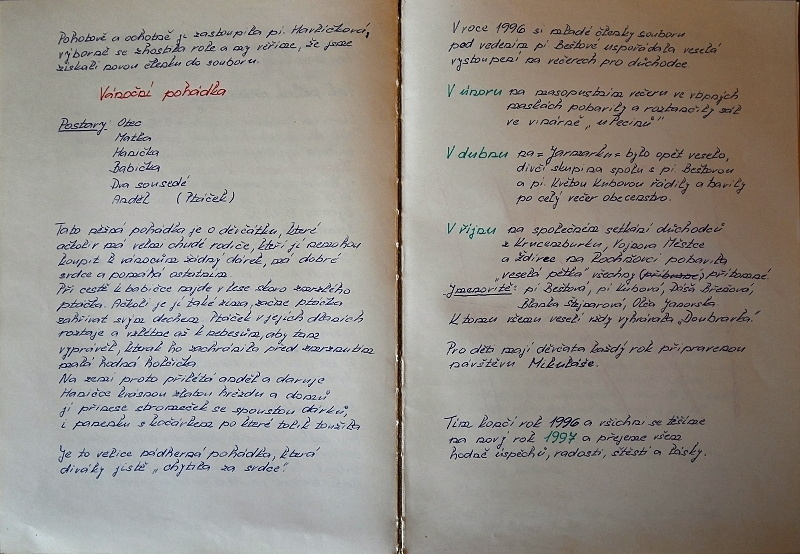 Pohotově a ochotně ji zastoupila pí. Havlíčková,
výborně se zhostila role a my věříme, že jsme
získali novou členku do souboru.
Vánoční pohádka
Postavy: Otec
Matka
Hanička
Babička
Dva sousedé
Anděl (Ptáček)
Tato pěkná pohádka je o děvčátku, které
ačkoliv má velmi chudé rodiče, kteří jí nemohou
koupit k vánocům žádný dárek, má dobré
srdce a pomáhá ostatním.
Při cestě k babičce najde v lese skoro zmrzlého
ptáčka. Ačkoli je jí také zima, začne ptáčka
zahřívat svým dechem. Ptáček v jejích dlaních
roztaje a vzlétne až k nebesům, aby tam
vyprávěl, kterak ho zachránila před zmrznutím
malá hodná holčička
Na zemi proto přilétá anděl a daruje
Haničce krásnou zlatou hvězdu a domů
jí přinese stromeček se spoustou dárků,
i panenku s kočárkem po které tolik toužila
Je to velice nádherná pohádka, která
diváky jistě „chytila za srdce".
V roce 1996 si mladé členky souboru
pod vedením pí Beštové uspořádala veselá
vystoupení na večerech pro důchodce.
V únoru na masopustním večeru ve vtipných
maskách pobavily a roztančily sál
ve vinárně „u Pecinů"
V dubnu na = Jarmarku = bylo opět veselo,
dívčí skupina spolu s pí. Beštovou
a pí. Květou Kubovou řádily a bavily
po celý večer obecenstvo.
V říjnu na společném setkání důchodců
z Krucemburku, Vojnova Městce
a Ždírce na Rochňovci pobavila
„veselá pětka" všechny přítomné
Jmenovitě: pí Beštová, pí Kubová, Dáša Březinová,
Blanka Štejnarová, Olča Janovská
K tomu všemu veselí vždy vyhrávala „Doubravka."
Pro děti mají děvčata každý rok připravenou
návštěvu Mikuláše.
Tím končí rok 1996 a všichni se těšíme
na nový rok 1997 a přejeme všem
hodně úspěchů, radosti, štěstí a lásky.